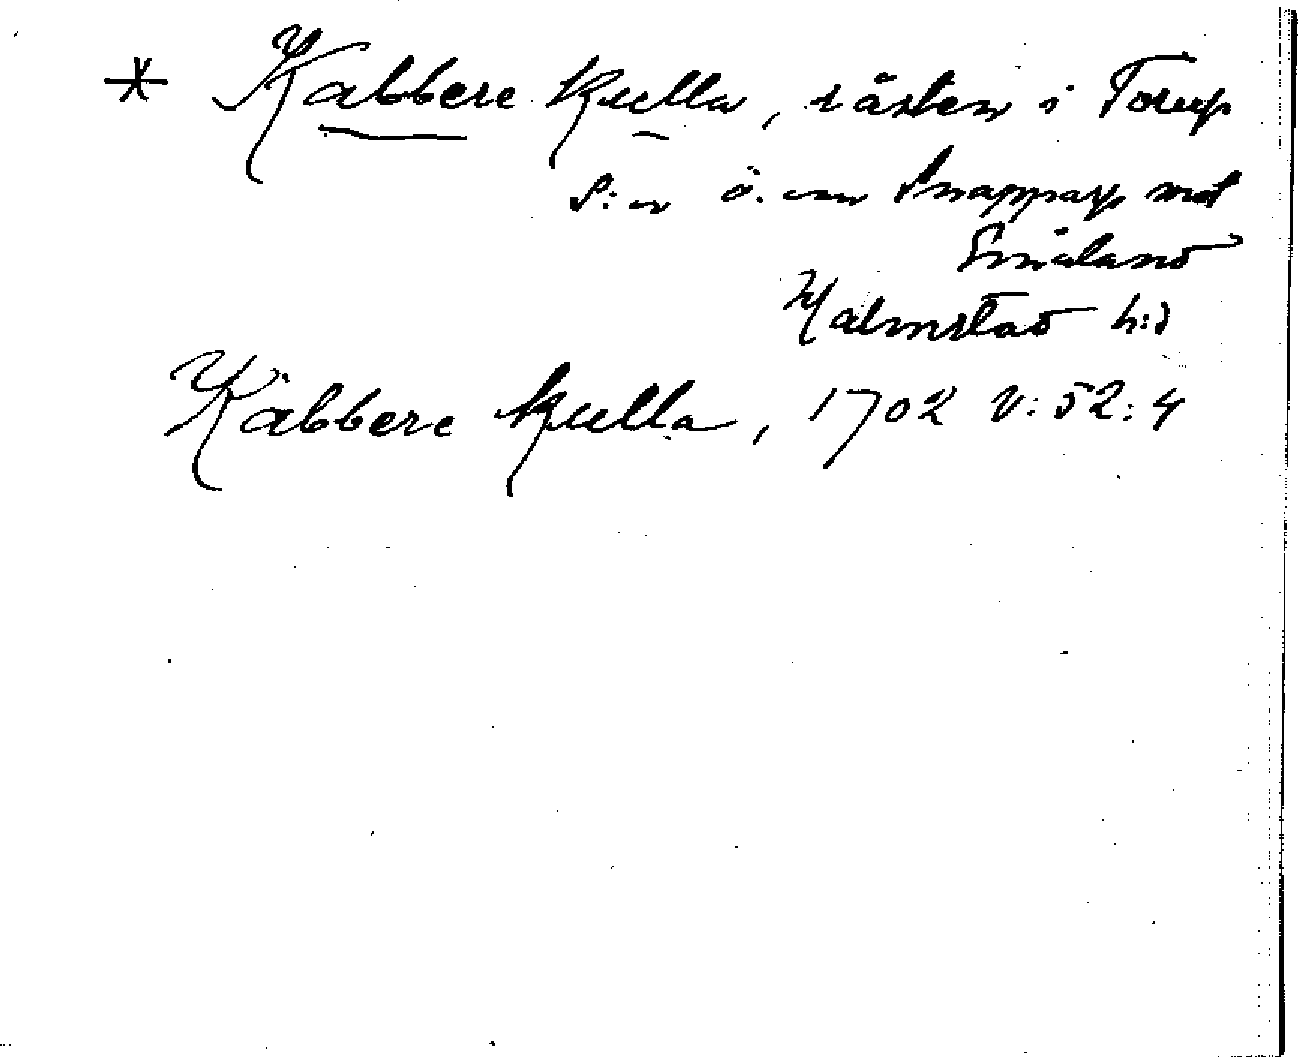 * Kabbere kulla, rösten i Torup
S:n ö. om Snapparp mot
Småland
Halmstad h:d
Käbbere kulla, 1702 V:52:4